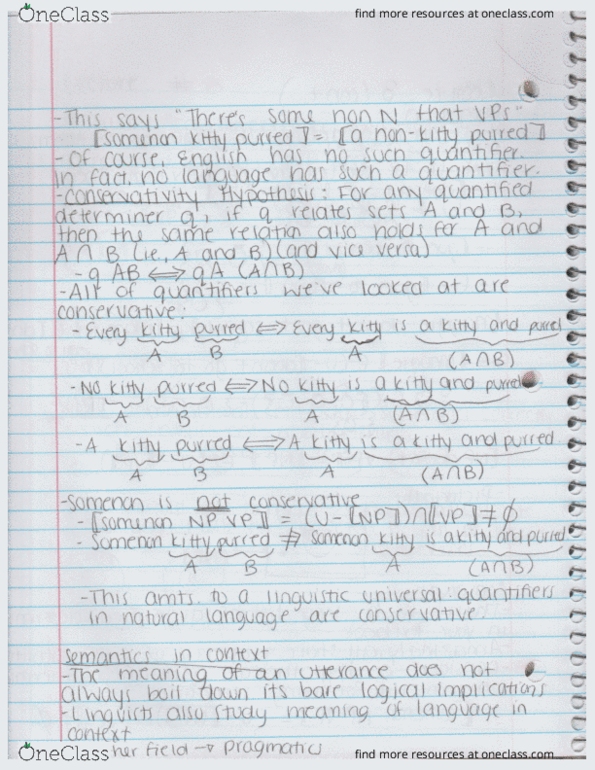 OneClass
find more resources at oneclass.com
-This says "There's some non N that VPs"
⟦somenon kitty purred⟧ = ⟦a non-kitty purred⟧
- Of course, English has no such quantifier.
In fact, no language has such a quantifier.
-Conservativity Hypothesis: For any quantified
determiner q, if q relates sets A and B,
then the same relation also holds for A and
A∩B (ie, A and B) (and vice versa)
- q AB ⟺ q A (A∩B)
-All of quantifiers we've looked at are
conservative:
- Every kitty purred ⟺ Every kitty is a kitty and purred
A B A (A∩B)
- No kitty purred ⟺ No kitty is a kitty and purred
A B A (A∩B)
-A kitty purred ⟺ A kitty is a kitty and purred
A B A (A∩B)
-somenon is not conservative
- ⟦somenon NP VP⟧ = (U-⟦NP⟧)∩⟦VP⟧≠∅
- Somenon kitty purred ⇏ somenon kitty is a kitty and purred
A B A (A∩B)
-This amts. to a linguistic universal: quantifiers
in natural language are conservative
semantics in context
-The meaning of an utterance does not
always boil down its bare logical implications
-Linguists also study meaning of language in
context
her field → pragmatics
OneClass
find more resources at oneclass.com